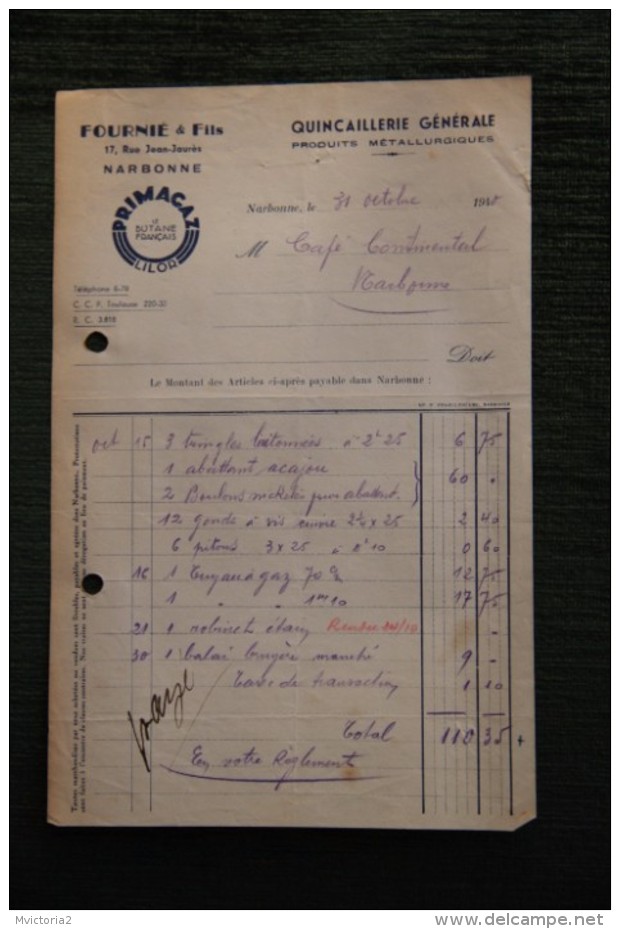 FOURNIÉ & Fils
17, Rue Jean-Jaurès
NARBONNE
QUINCAILLERIE GÉNÉRALE
PRODUITS MÉTALLURGIQUES
PRIMAGAZ
LE
BUTANE
FRANÇAIS
LILOR
Narbonne, le 31 octobre 194
M Café Continental
Narbonne
Téléphone 6-70
C. C. P. Toulouse
R. C. 3.818
Doit
Le Montant des Articles ci-après payable dans Narbonne :
oct 15 3 tringles à 2f 25 6 75
1 abattant acajou
2 Boulons nickelés pour abattant. 60 "
12 gonds à vis cuivre 2¼ x 25 2 40
6 pitons 3 x 25 à 0f10 0 60
16 1 Tuyau à gaz 70 12 75
1 " " 1m10 17 75
21 1 robinet étain Rendu 24/10 -
30 1 balai bruyère manché 9 -
Taxe de transaction 1 10
Total 110 35
En votre Règlement
Mvictoria2
www.delcampe.net